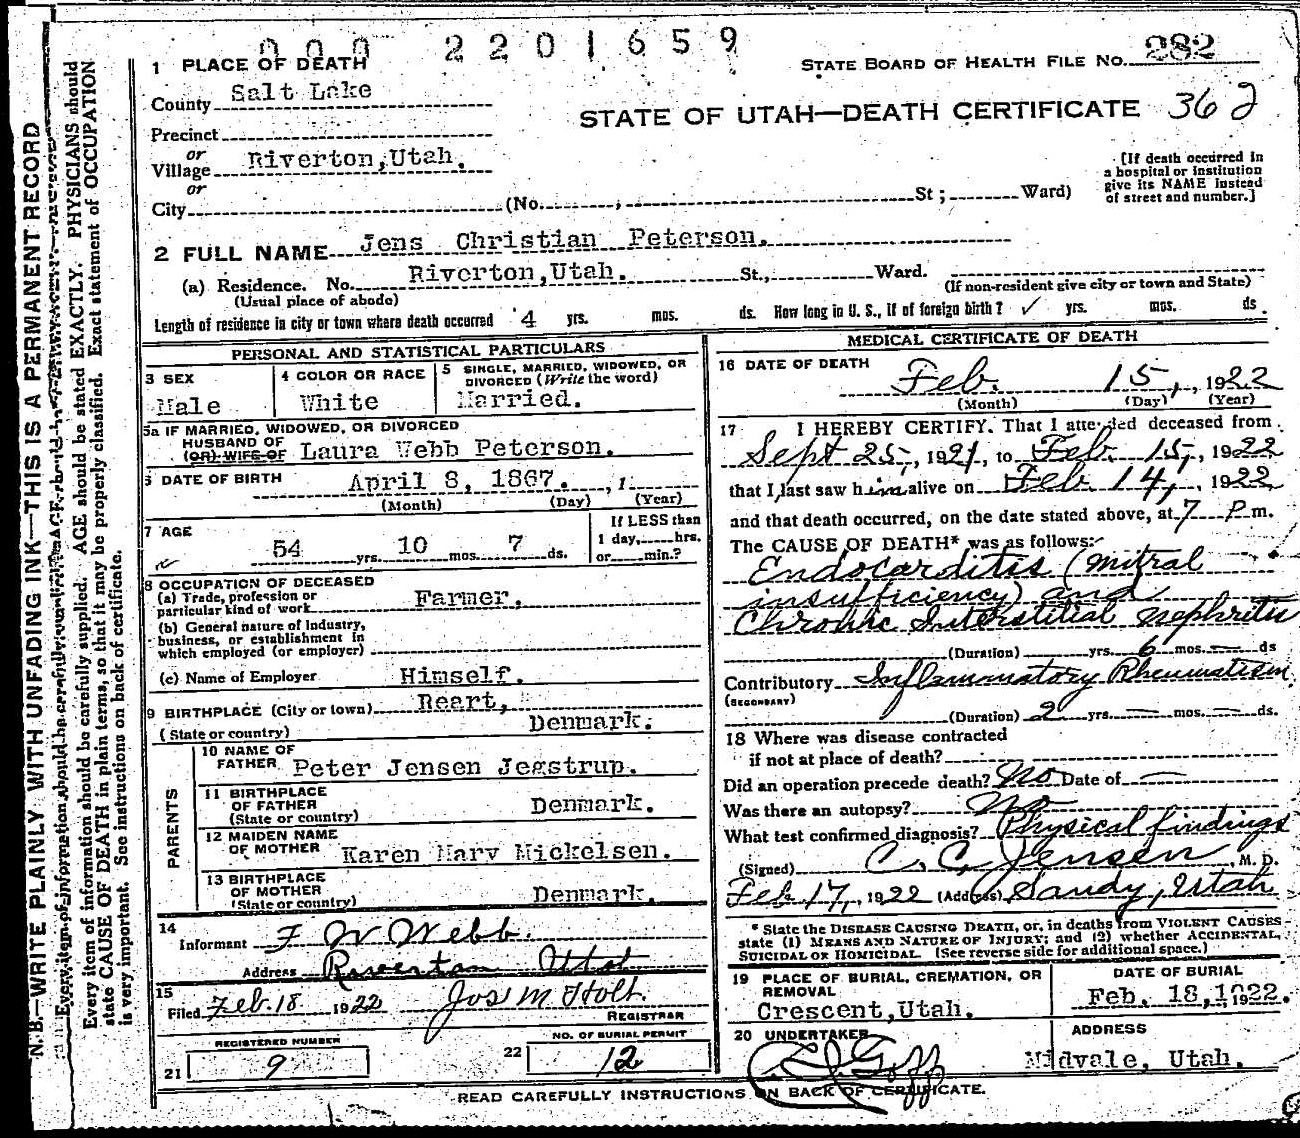 000 2201659
1 PLACE OF DEATH
STATE BOARD OF HEALTH FILE NO. 282
County Salt Lake
STATE OF UTAH—DEATH CERTIFICATE 362
Precinct
or
Village Riverton,Utah.
or
City (No. ; St; Ward)
[If death occurred in
a hospital or institution
give its NAME instead
of street and number.]
2 FULL NAME Jens Christian Peterson.
(a) Residence. No. Riverton,Utah. St., Ward.
(Usual place of abode)
(If non-resident give city or town and State)
Length of residence in city or town where death occurred 4 yrs. mos. ds. How long in U. S., if of foreign birth? ✓ yrs. mos. ds.
PERSONAL AND STATISTICAL PARTICULARS
3 SEX
Male
4 COLOR OR RACE
White
5 SINGLE, MARRIED, WIDOWED, OR
DIVORCED (Write the word)
Married.
5a IF MARRIED, WIDOWED, OR DIVORCED
HUSBAND OF
(OR) WIFE OF Laura Webb Peterson.
6 DATE OF BIRTH April 8, 1867. , 1
(Month) (Day) (Year)
7 AGE
54 yrs. 10 mos. 7 ds.
If LESS than
1 day, hrs.
or min.?
8 OCCUPATION OF DECEASED
(a) Trade, profession or
particular kind of work Farmer.
(b) General nature of Industry,
business, or establishment in
which employed (or employer)
(c) Name of Employer Himself.
9 BIRTHPLACE (City or town) Reart,
(State or country) Denmark.
PARENTS
10 NAME OF
FATHER Peter Jensen Jegstrup.
11 BIRTHPLACE
OF FATHER
(State or country) Denmark.
12 MAIDEN NAME
OF MOTHER Karen Mary Mickelsen.
13 BIRTHPLACE
OF MOTHER
(State or country) Denmark.
14
Informant F W Webb.
Address Riverton Utah
15
Filed Feb. 18 1922 Jos M Holt
REGISTRAR
REGISTERED NUMBER
21 9
NO. OF BURIAL PERMIT
22 12
MEDICAL CERTIFICATE OF DEATH
16 DATE OF DEATH
Feb. 15, , 1922
(Month) (Day) (Year)
17 I HEREBY CERTIFY. That I attended deceased from
Sept 25, , 1921, to Feb. 15, , 1922
that I last saw him alive on Feb 14, , 1922
and that death occurred, on the date stated above, at 7 P m.
The CAUSE OF DEATH* was as follows:
Endocarditis (mitral
insufficiency) and
Chronic Interstitial nephritis
(Duration) yrs. 6 mos. — ds
Contributory Inflammatory Rheumatism
(SECONDARY)
(Duration) 2 yrs. — mos. — ds.
18 Where was disease contracted
if not at place of death?
Did an operation precede death? No Date of —
Was there an autopsy? No
What test confirmed diagnosis? Physical findings
(Signed) C. C. Jensen, M. D.
Feb 17, , 1922 (Address) Sandy, Utah
* State the DISEASE CAUSING DEATH, or, in deaths from VIOLENT CAUSES
state (1) MEANS AND NATURE OF INJURY; and (2) whether ACCIDENTAL,
SUICIDAL OR HOMICIDAL. (See reverse side for additional space.)
19 PLACE OF BURIAL, CREMATION, OR
REMOVAL
Crescent,Utah.
DATE OF BURIAL
Feb. 18,1922.,1922.
20 UNDERTAKER
Goff
ADDRESS
Midvale, Utah.
READ CAREFULLY INSTRUCTIONS ON BACK OF CERTIFICATE.
N. B.—WRITE PLAINLY WITH UNFADING INK—THIS IS A PERMANENT RECORD
Every item of information should be carefully supplied. AGE should be stated EXACTLY. PHYSICIANS should
state CAUSE OF DEATH in plain terms, so that it may be properly classified. Exact statement of OCCUPATION
is very important. See instructions on back of certificate.